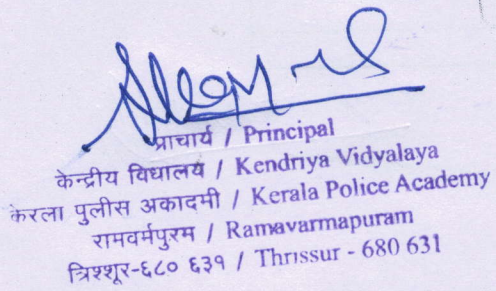 प्राचार्य / Principal
केन्द्रीय विघालय / Kendriya Vidyalaya
केरला पुलीस अकादमी / Kerala Police Academy
रामवर्मपुरम / Ramavarmapuram
त्रिश्शूर-६८० ६३१ / Thrissur - 680 631